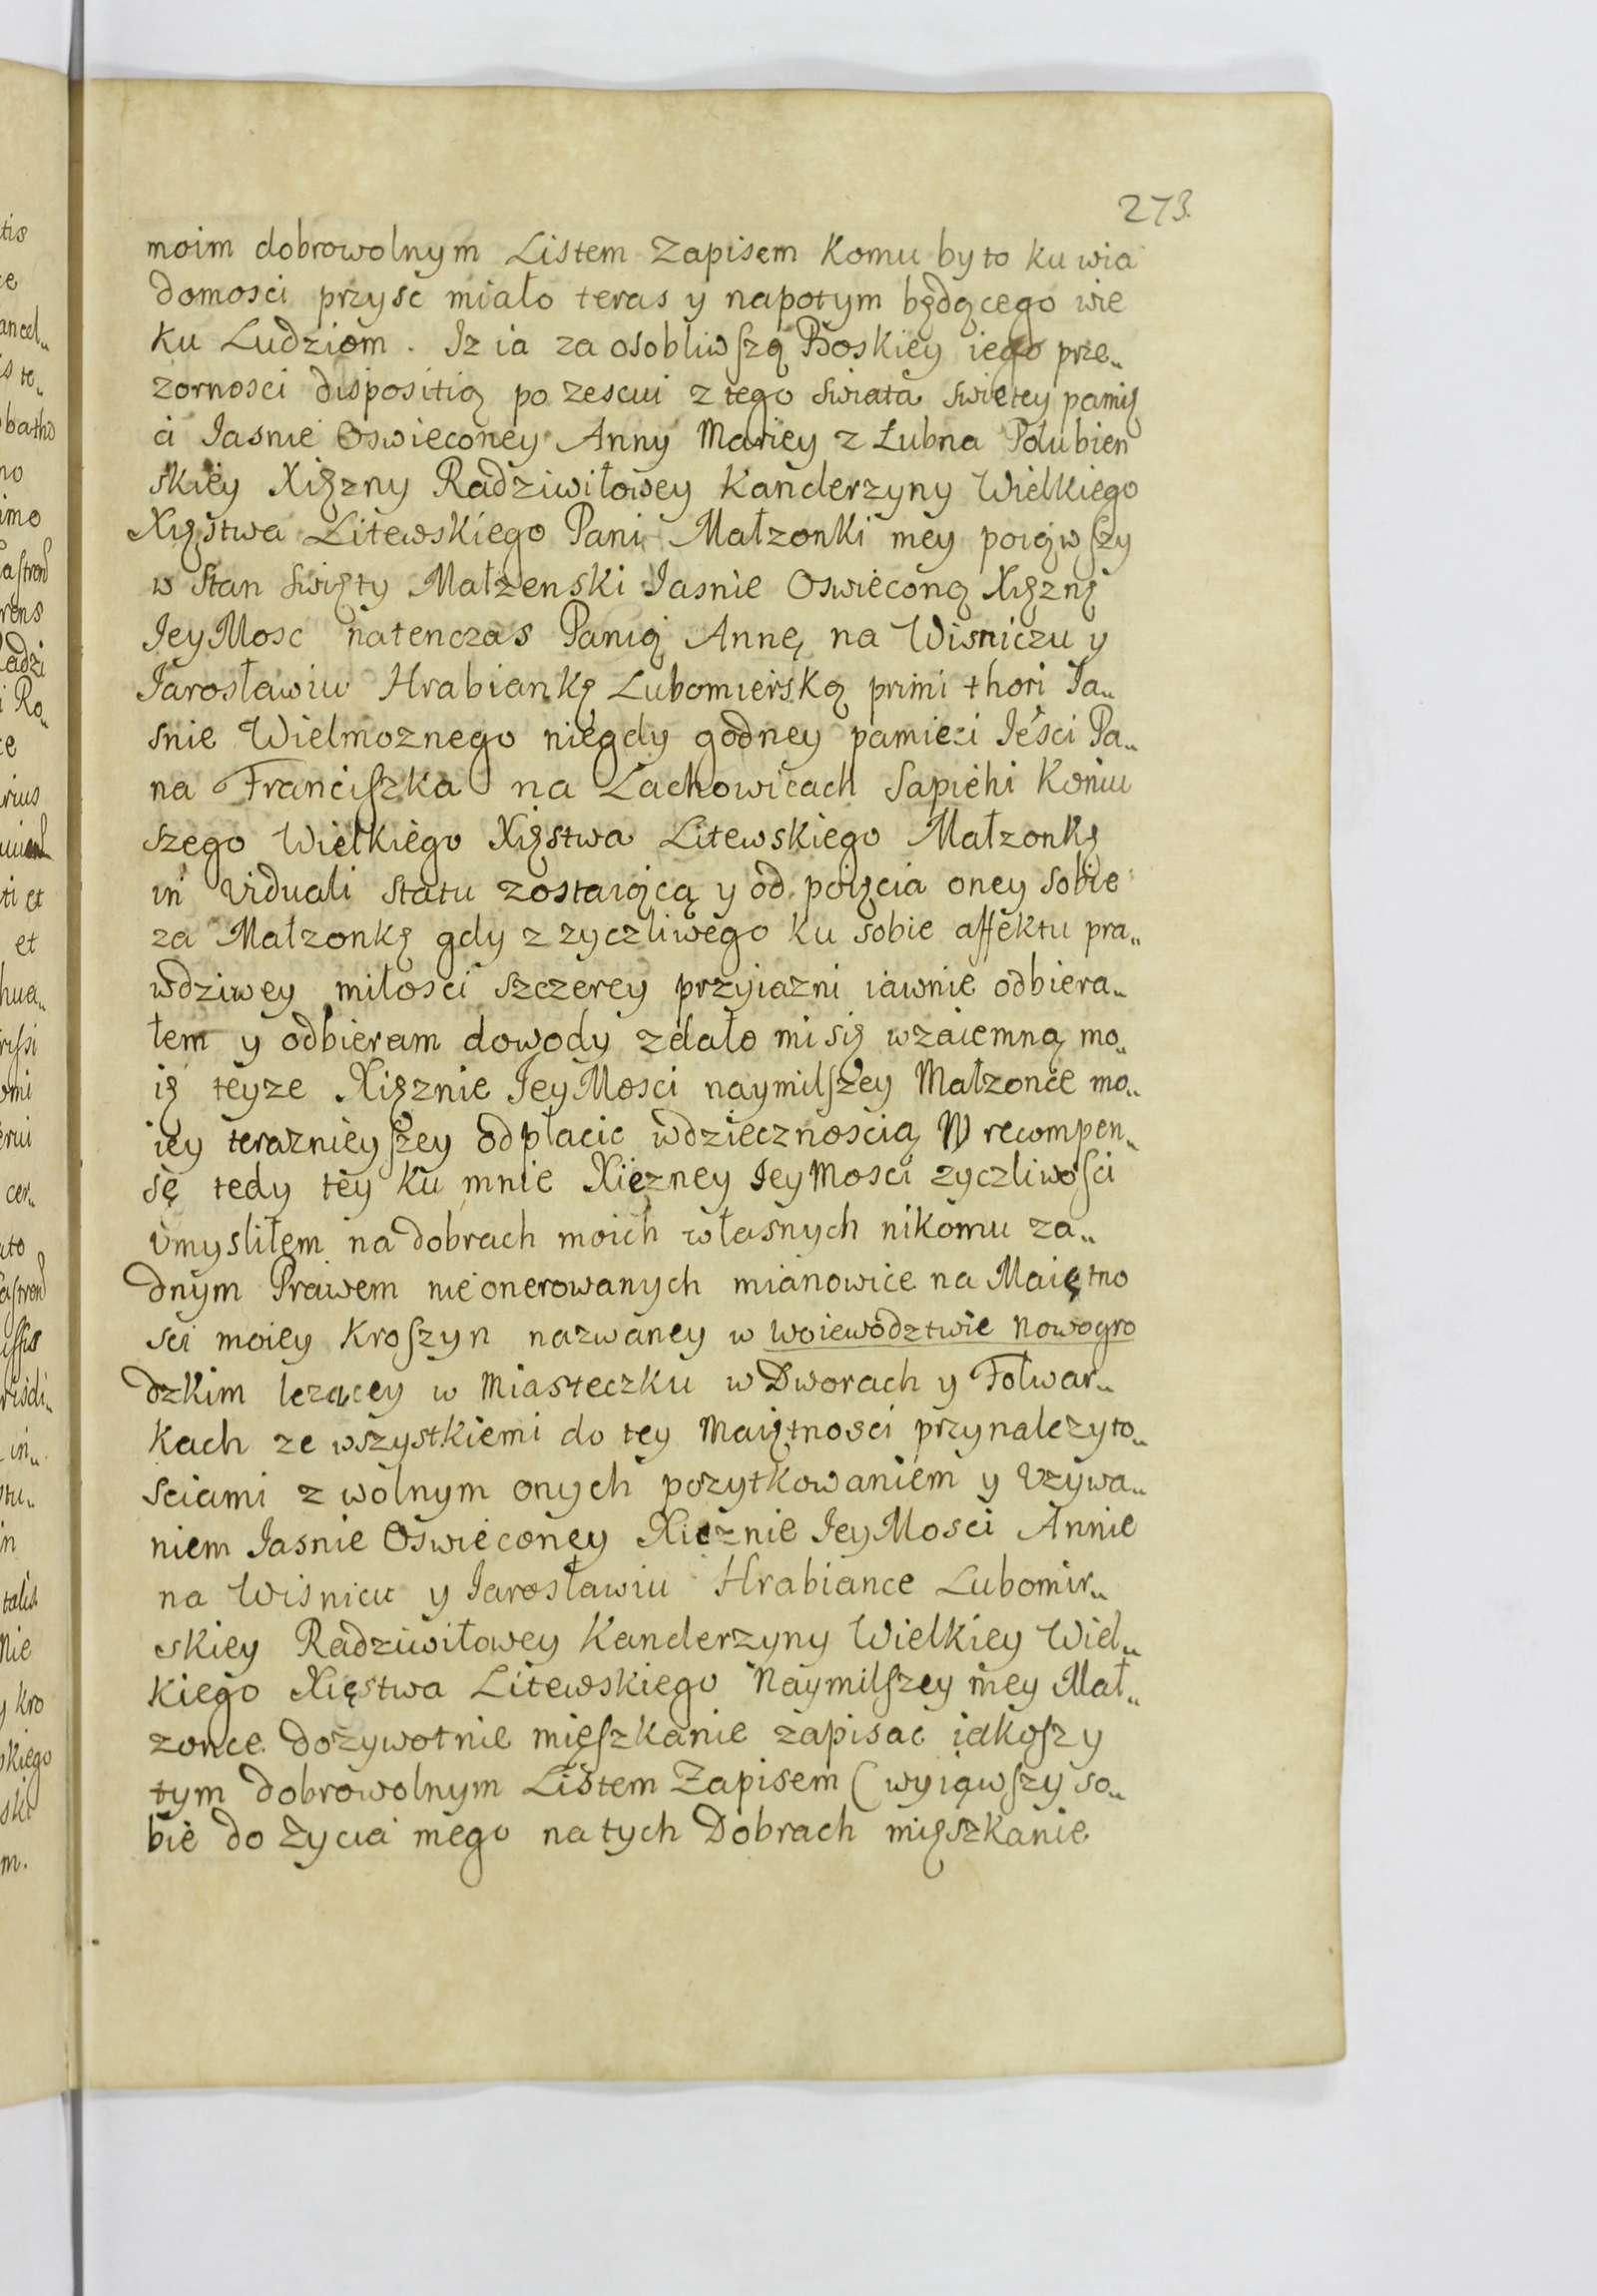 273.
moim dobrowolnym Listem Zapisem Komu by to ku wia
domosci przysc miało teras y napotym będącego wie
ku Ludziom. Iz ia za osobliwſzą Boskiey iego prze„
zornosci dispositią po zesciu z tego swiata swietey pamię
ci Iasnie Oswieconey Anny Mariey z Lubna Połubien
skiey Xięzny Radziwiłowey Kanclerzyny Wielkiego
Xięstwa Litewskiego Pani Małzonki mey poiąwſzy
w stan swięty Małzenski Iasnie Oswieconą Xięznę
IeyMosc natenczas Panią Annę na Wisniczu y
Iarosławiu Hrabiankę Lubomierską primi thori Ia„
snie Wielmoznego niegdy godney pamieci Ieści Pa„
na Franciſzka na Lachowicach Sapiehi Koniu
szego Wielkiego Xięstwa Litewskiego Małzonkę
in viduali statu zostaiącą y od poięcia oney sobie
za Małzonkę gdy z zyczliwego ku sobie affektu pra„
wdziwey miłosci szczerey przyiazni iawnie odbiera„
łem y odbieram dowody zdało mi się wzaiemną mo„
ię teyze Xięznie IeyMosci naymilſzey Małzonce mo„
iey teraznieyſzey odpłacic wdziecznoscią W recompen„
sę tedy tey ku mnie Xiezney IeyMosci zyczliwoſci
vmysliłem na dobrach moich własnych nikomu za„
dnym Prawem nie onerowanych mianowice na Maiętno
sci moiey Kroſzyn nazwaney w Woiewodztwie Nowogro
dzkim lezącey w Miasteczku w Dworach y Folwar„
kach ze wszystkiemi do tey Maiętnosci przynalezyto„
sciami z wolnym onych pozytkowaniem y Vzywa„
niem Iasnie Oswieconey Xieznie IeyMosci Annie
na Wisnicu y Iarosławiu Hrabiance Lubomir„
skiey Radziwiłowey Kanclerzyny Wielkiey Wiel„
kiego Xięstwa Litewskiego Naymilſzey mey Mał„
zonce dozywotnie mieſzkanie zapisac iakoſz y
tym dobrowolnym Listem Zapisem (wyiąwſzy so„
bie do Zycia mego na tych Dobrach mięszkanie